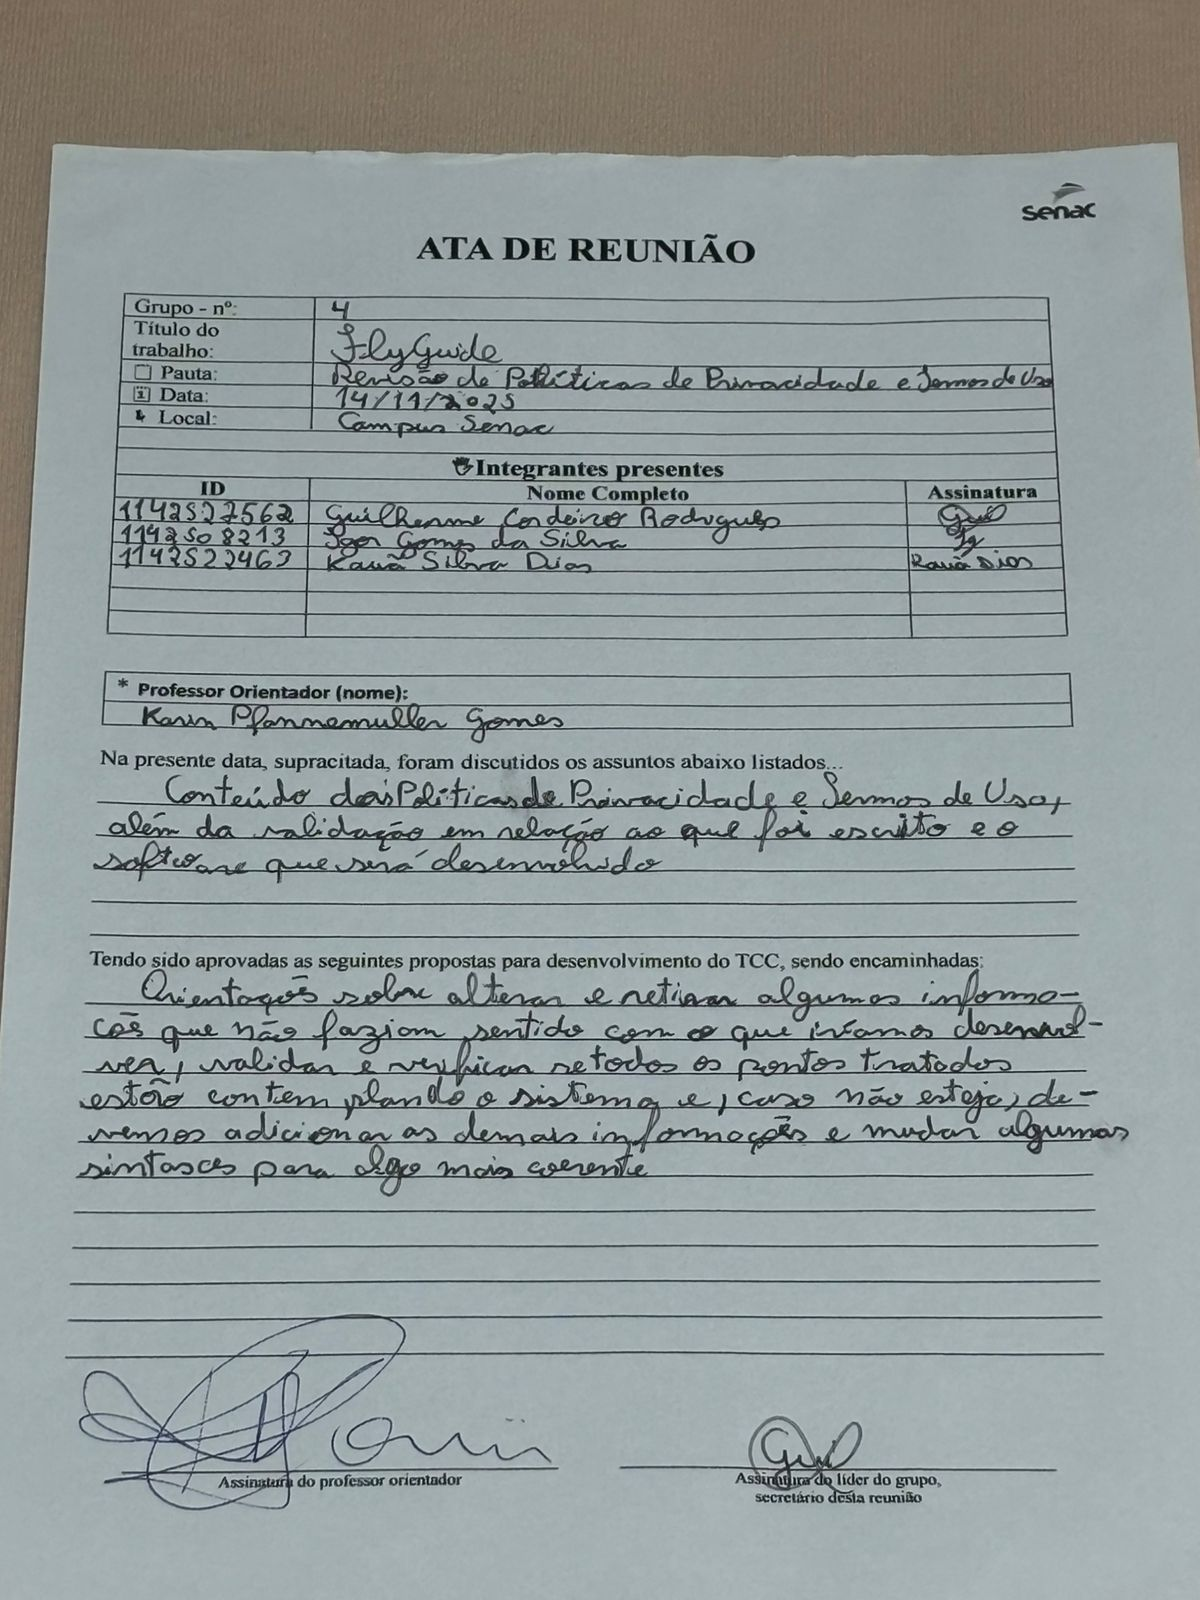 senac
ATA DE REUNIÃO
Grupo - nº: 4
Título do
trabalho: FlyGuide
Pauta: Revisão de Políticas de Privacidade e Termos de Uso
Data: 14/11/2025
Local: Campus Senac
Integrantes presentes
ID Nome Completo Assinatura
1142527562 Guilherme Cordeiro Rodrigues Guil
1142508213 Igor Gomes da Silva Ig
1142522463 Kauã Silva Dias Kauã Dias
* Professor Orientador (nome):
Karin Pfannemuller Gomes
Na presente data, supracitada, foram discutidos os assuntos abaixo listados...
Conteúdo das Políticas de Privacidade e Termos de Uso,
além da validação em relação ao que foi escrito e o
software que será desenvolvido
Tendo sido aprovadas as seguintes propostas para desenvolvimento do TCC, sendo encaminhadas:
Orientações sobre alterar e retirar algumas informa-
ções que não faziam sentido com o que iríamos desenvol-
ver, validar e verificar se todos os pontos tratados
estão contemplando o sistema e, caso não esteja, de-
vemos adicionar as demais informações e mudar algumas
sintaxes para algo mais coerente
Karin
Assinatura do professor orientador
Guil
Assinatura do líder do grupo,
secretário desta reunião